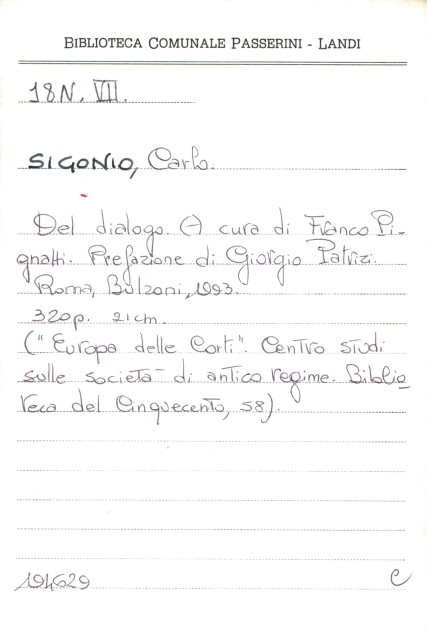 BIBLIOTECA COMUNALE PASSERINI - LANDI
18 N. VII.
SIGONIO, Carlo.
Del dialogo. (-) cura di Franco Pi-
gnatti. Prefazione di Giorgio Patrizi.
Roma, Bulzoni, 1993.
320 p. 21 cm.
("Europa delle Corti". Centro studi
sulle società di antico regime. Biblio
teca del Cinquecento, 58).
194629
C